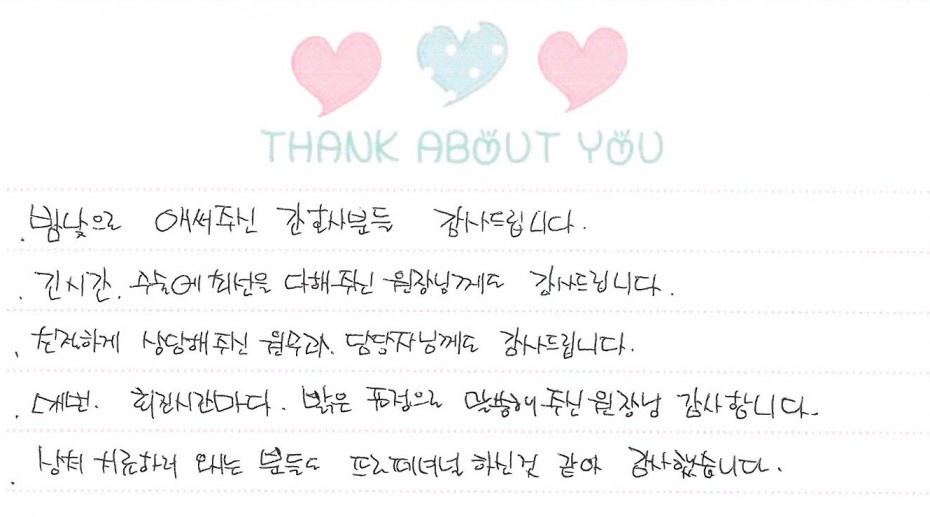 THANK ABOUT YOU
. 밤낮으로 애써주신 간호사분들 감사드립니다.
. 긴시간. 수술에 최선을 다해주신 원장님께도 감사드립니다.
. 친절하게 상담해주신 원무과. 담당자님께도 감사드립니다.
. 매번. 회진시간마다. 밝은 표정으로 말씀해주신 원장님 감사합니다.
. 상처 치료하러 오시는 분들도 프로페셔널 하신것 같아 감사했습니다.